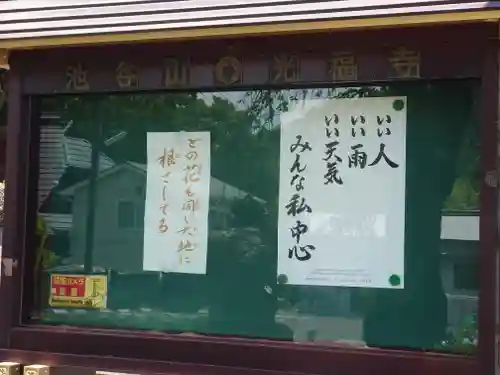 池谷山
光福寺
いい人
いい雨
いい天気
みんな私中心
どの花も同じ大地に
根ざしてる